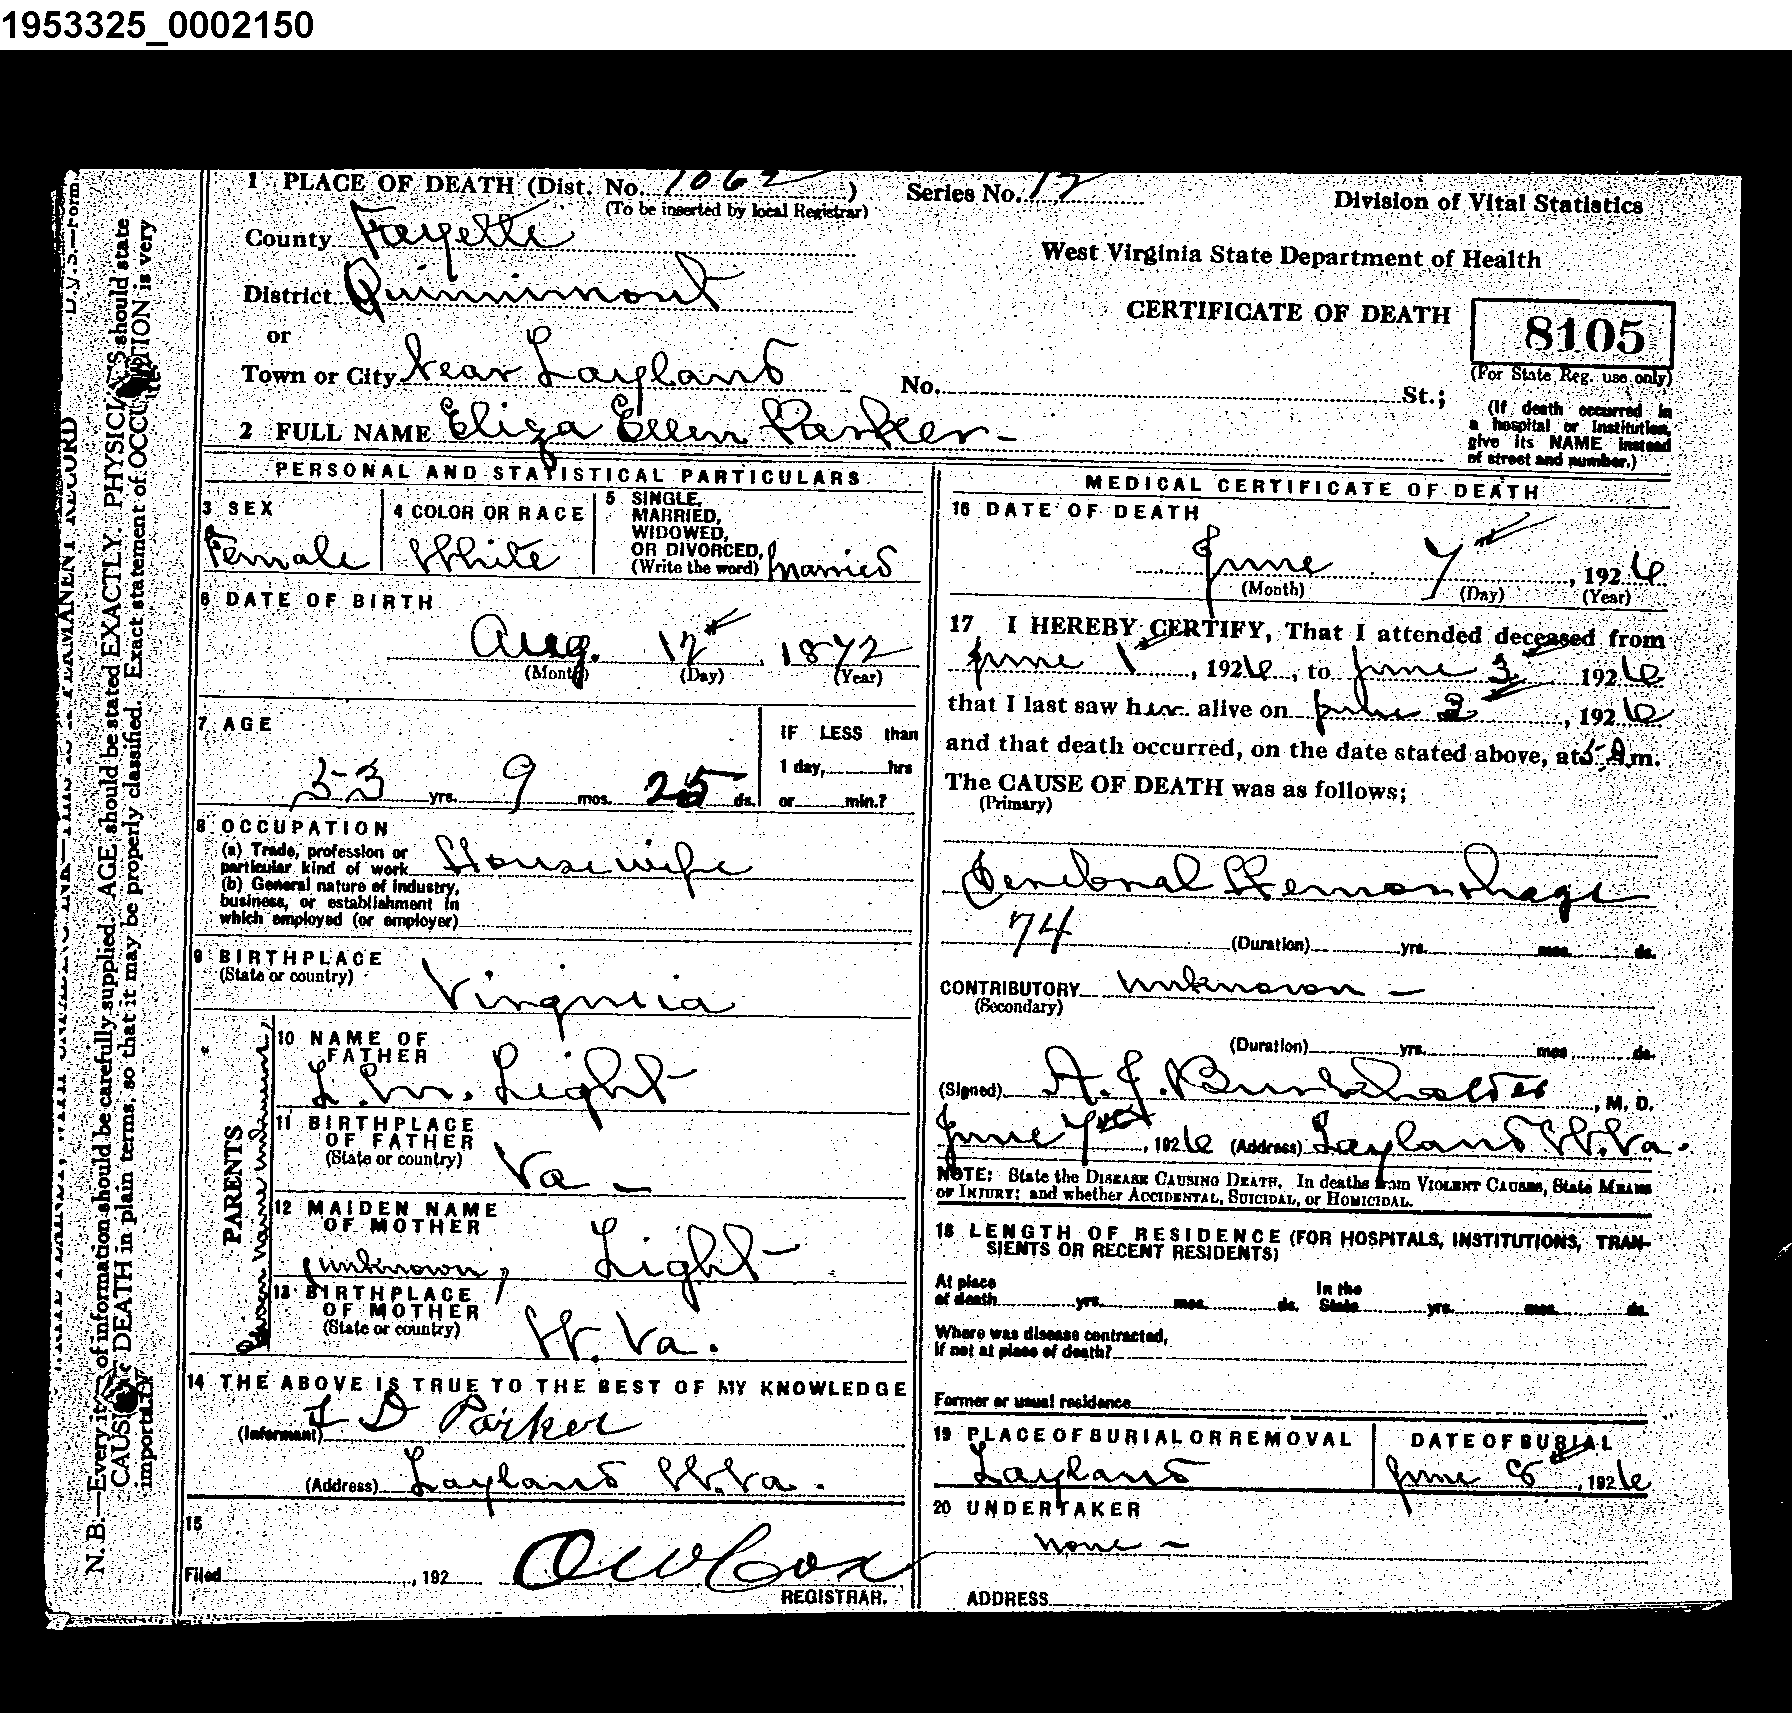 1953325_0002150
1 PLACE OF DEATH (Dist. No. 1062) Series No. 12 Division of Vital Statistics
(To be inserted by local Registrar)
County Fayette
West Virginia State Department of Health
District Quinnimont
CERTIFICATE OF DEATH 8105
or
(For State Reg. use only)
Town or City Near Layland No. St.;
(If death occurred in
a hospital or institution,
give its NAME instead
of street and number.)
2 FULL NAME Eliza Ellen Parker
PERSONAL AND STATISTICAL PARTICULARS
3 SEX
Female
4 COLOR OR RACE
White
5 SINGLE,
MARRIED,
WIDOWED,
OR DIVORCED,
(Write the word) Married
6 DATE OF BIRTH
Aug. 12, 1872
(Month) (Day) (Year)
7 AGE
53 yrs. 9 mos. 25 ds.
IF LESS than
1 day, hrs
or min.?
8 OCCUPATION
(a) Trade, profession or
particular kind of work Housewife
(b) General nature of industry,
business, or establishment in
which employed (or employer)
9 BIRTHPLACE
(State or country) Virginia
PARENTS
10 NAME OF
FATHER
L.M. Light
11 BIRTHPLACE
OF FATHER
(State or country) Va -
12 MAIDEN NAME
OF MOTHER
unknown, Light
13 BIRTHPLACE
OF MOTHER
(State or country) W. Va.
14 THE ABOVE IS TRUE TO THE BEST OF MY KNOWLEDGE
(Informant) Parker
(Address) Layland W.Va.
15
Filed , 192 O W Cox
REGISTRAR.
MEDICAL CERTIFICATE OF DEATH
16 DATE OF DEATH
June 7, 1926
(Month) (Day) (Year)
17 I HEREBY CERTIFY, That I attended deceased from
June 1, 1926, to June 3 1926
that I last saw her alive on June 3, 1926
and that death occurred, on the date stated above, at 5 A.m.
The CAUSE OF DEATH was as follows;
(Primary)
Cerebral Hemorrhage
74
(Duration) yrs. mos. ds.
CONTRIBUTORY unknown -
(Secondary)
(Duration) yrs. mos. ds.
(Signed) A. J. Burkholder, M. D.
June 7, 1926 (Address) Layland W.Va.
NOTE: State the DISEASE CAUSING DEATH. In deaths from VIOLENT CAUSES, State MEANS
OF INJURY; and whether ACCIDENTAL, SUICIDAL, or HOMICIDAL.
18 LENGTH OF RESIDENCE (FOR HOSPITALS, INSTITUTIONS, TRAN-
SIENTS OR RECENT RESIDENTS)
At place
of death yrs. mos. ds.
In the
State yrs. mos. ds.
Where was disease contracted,
if not at place of death?
Former or usual residence
19 PLACE OF BURIAL OR REMOVAL
Layland
DATE OF BURIAL
June 8, 1926
20 UNDERTAKER
none -
ADDRESS
N. B.—Every item of information should be carefully supplied. AGE should be stated EXACTLY. PHYSICIANS should state
CAUSE OF DEATH in plain terms, so that it may be properly classified. Exact statement of OCCUPATION is very
important.